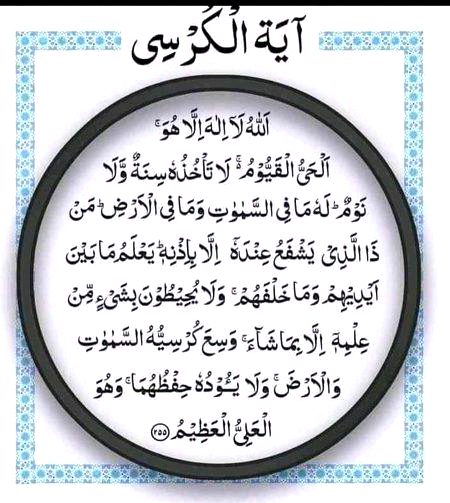 آيَة الْكُرْسِى
اَللّٰهُ لَاۤ اِلٰهَ اِلَّا هُوَۚ
اَلْحَیُّ الْقَیُّوْمُ ۬ۚ لَا تَاْخُذُهٗ سِنَةٌ وَّلَا
نَوْمٌ ؕ لَهٗ مَا فِی السَّمٰوٰتِ وَمَا فِی الْاَرْضِ ؕ مَنْ
ذَا الَّذِیْ یَشْفَعُ عِنْدَهٗۤ اِلَّا بِاِذْنِهٖ ؕ یَعْلَمُ مَا بَیْنَ
اَیْدِیْهِمْ وَمَا خَلْفَهُمْ ۚ وَلَا یُحِیْطُوْنَ بِشَیْءٍ مِّنْ
عِلْمِهٖۤ اِلَّا بِمَا شَآءَ ۚ وَسِعَ كُرْسِیُّهُ السَّمٰوٰتِ
وَالْاَرْضَ ۚ وَلَا یَـُٔوْدُهٗ حِفْظُهُمَا ۚ وَهُوَ
الْعَلِیُّ الْعَظِیْمُ ﴿۲۵۵﴾